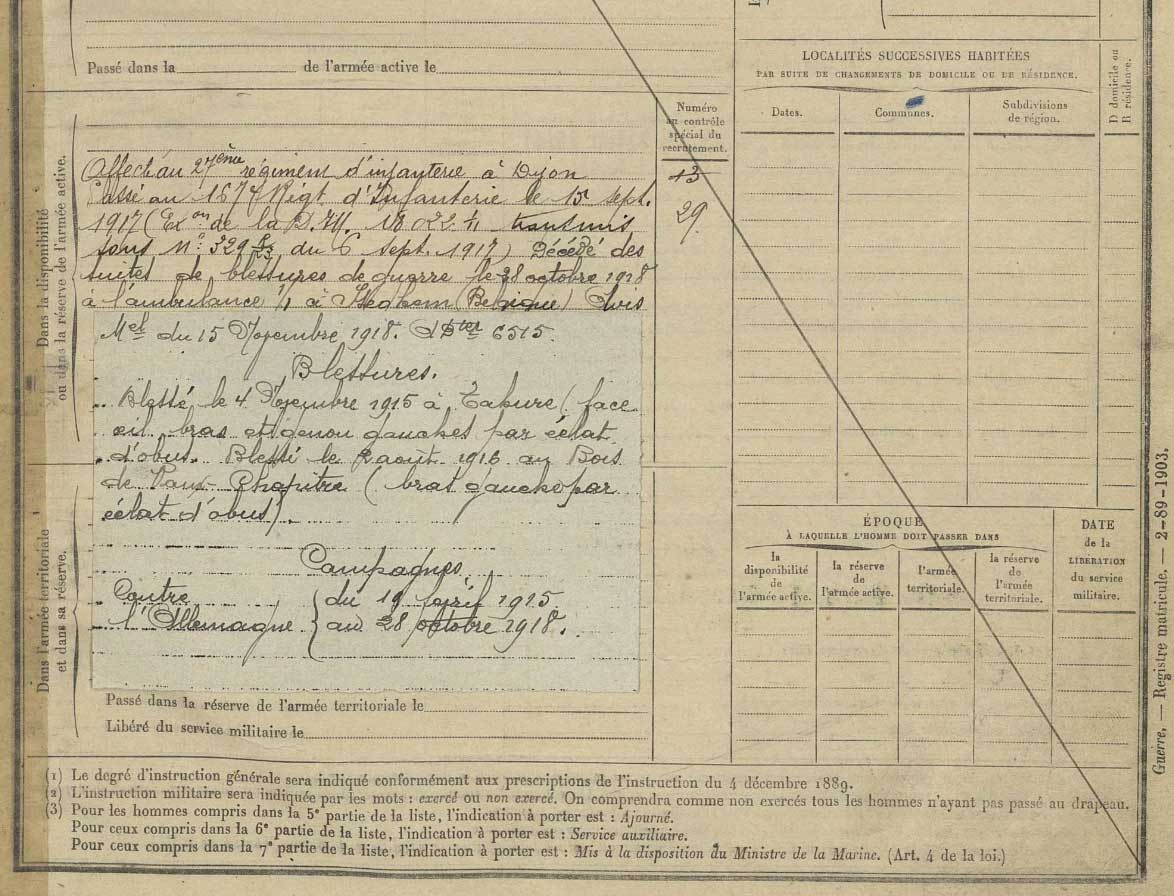 Passé dans la de l'armée active le
Dans la disponibilité
ou dans la réserve de l'armée active.
Affecté au 27ème régiment d'infanterie à Dijon
Passé au 167e Régt d'Infanterie le 15 sept.
1917 (Exon de la D.M. 18022 1/11 transmis
sous No 329 du 6 sept. 1917) Décédé des
suites de blessures de guerre le 28 octobre 1918
à l'ambulance 1/1 à (Belgique) Avis
Mel du 15 Novembre 1918. 6515.
Blessures.
Blessé le 4 Novembre 1915 à Tahure (face
bras et genou gauches par éclat
d'obus. Blessé le 2 août 1916 au Bois
de Vaux-Chapitre (bras gauche par
éclat d'obus).
Dans l'armée territoriale
et dans sa réserve.
Campagnes
Contre
l'Allemagne
du 19 avril 1915
au 28 octobre 1918.
Passé dans la réserve de l'armée territoriale le
Libéré du service militaire le
Numéro
au contrôle
spécial du
recrutement.
13
29.
LOCALITÉS SUCCESSIVES HABITÉES
PAR SUITE DE CHANGEMENTS DE DOMICILE OU DE RÉSIDENCE.
Dates.
Communes.
Subdivisions
de région.
D domicile ou
R résidence.
ÉPOQUE
À LAQUELLE L'HOMME DOIT PASSER DANS
la
disponibilité
de
l'armée active.
la réserve
de
l'armée active.
l'armée
territoriale.
la réserve
de
l'armée
territoriale.
DATE
de la
LIBÉRATION
du service
militaire.
Guerre. — Registre matricule. — 2-89-1903.
(1) Le degré d'instruction générale sera indiqué conformément aux prescriptions de l'instruction du 4 décembre 1889.
(2) L'instruction militaire sera indiquée par les mots : exercé ou non exercé. On comprendra comme non exercés tous les hommes n'ayant pas passé au drapeau.
(3) Pour les hommes compris dans la 5e partie de la liste, l'indication à porter est : Ajourné.
Pour ceux compris dans la 6e partie de la liste, l'indication à porter est : Service auxiliaire.
Pour ceux compris dans la 7e partie de la liste, l'indication à porter est : Mis à la disposition du Ministre de la Marine. (Art. 4 de la loi.)